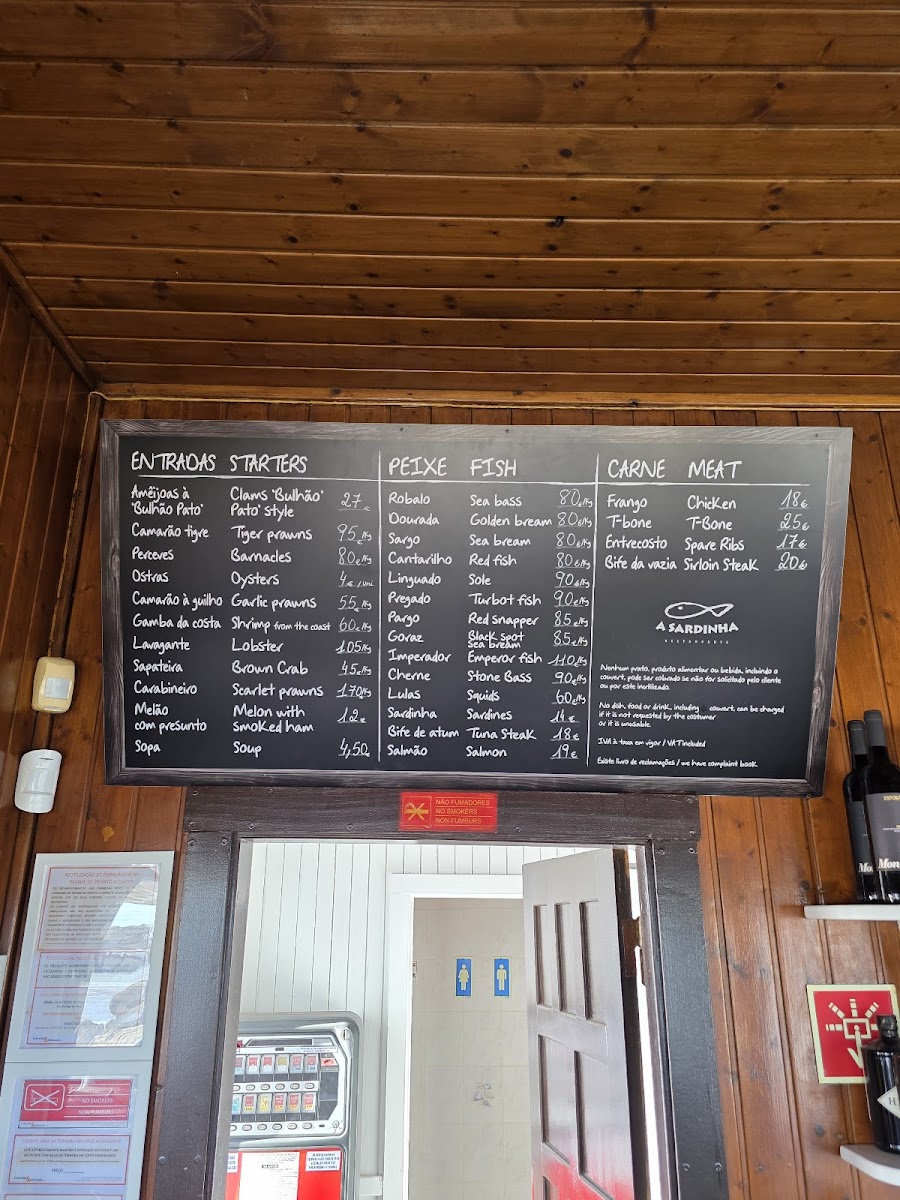 ENTRADAS STARTERS
Amêijoas à 'Bulhão Pato' Clams 'Bulhão' Pato' style 27€
Camarão tigre Tiger prawns 95€/Kg
Perceves Barnacles 80€/Kg
Ostras Oysters 4€/uni
Camarão à guilho Garlic prawns 55€/Kg
Gamba da costa Shrimp from the coast 60€/Kg
Lavagante Lobster 105€/Kg
Sapateira Brown Crab 45€/Kg
Carabineiro Scarlet prawns 170€/Kg
Melão com presunto Melon with smoked ham 12€
Sopa Soup 4,50€
PEIXE FISH
Robalo Sea bass 80€/Kg
Dourada Golden bream 80€/Kg
Sargo Sea bream 80€/Kg
Cantarilho Red fish 80€/Kg
Linguado Sole 90€/Kg
Pregado Turbot fish 90€/Kg
Pargo Red snapper 85€/Kg
Goraz Black spot sea bream 85€/Kg
Imperador Emperor fish 110€/Kg
Cherne Stone Bass 90€/Kg
Lulas Squids 60€/Kg
Sardinha Sardines 14€
Bife de atum Tuna Steak 18€
Salmão Salmon 19€
CARNE MEAT
Frango Chicken 18€
T-bone T-Bone 25€
Entrecosto Spare Ribs 17€
Bife da vazia Sirloin Steak 20€
A SARDINHA
RESTAURANTE
Nenhum prato, produto alimentar ou bebida, incluindo o
couvert, pode ser cobrado se não for solicitado pelo cliente
ou por este inutilizado.
No dish, food or drink, including couvert, can be charged
if it is not requested by the costumer
or it is unusable.
IVA à taxa em vigor / VAT included
Existe livro de reclamações / we have complaint book.
NÃO FUMADORES
NO SMOKERS
NON FUMEURS
NO SMOKERS
NON FUMEURS